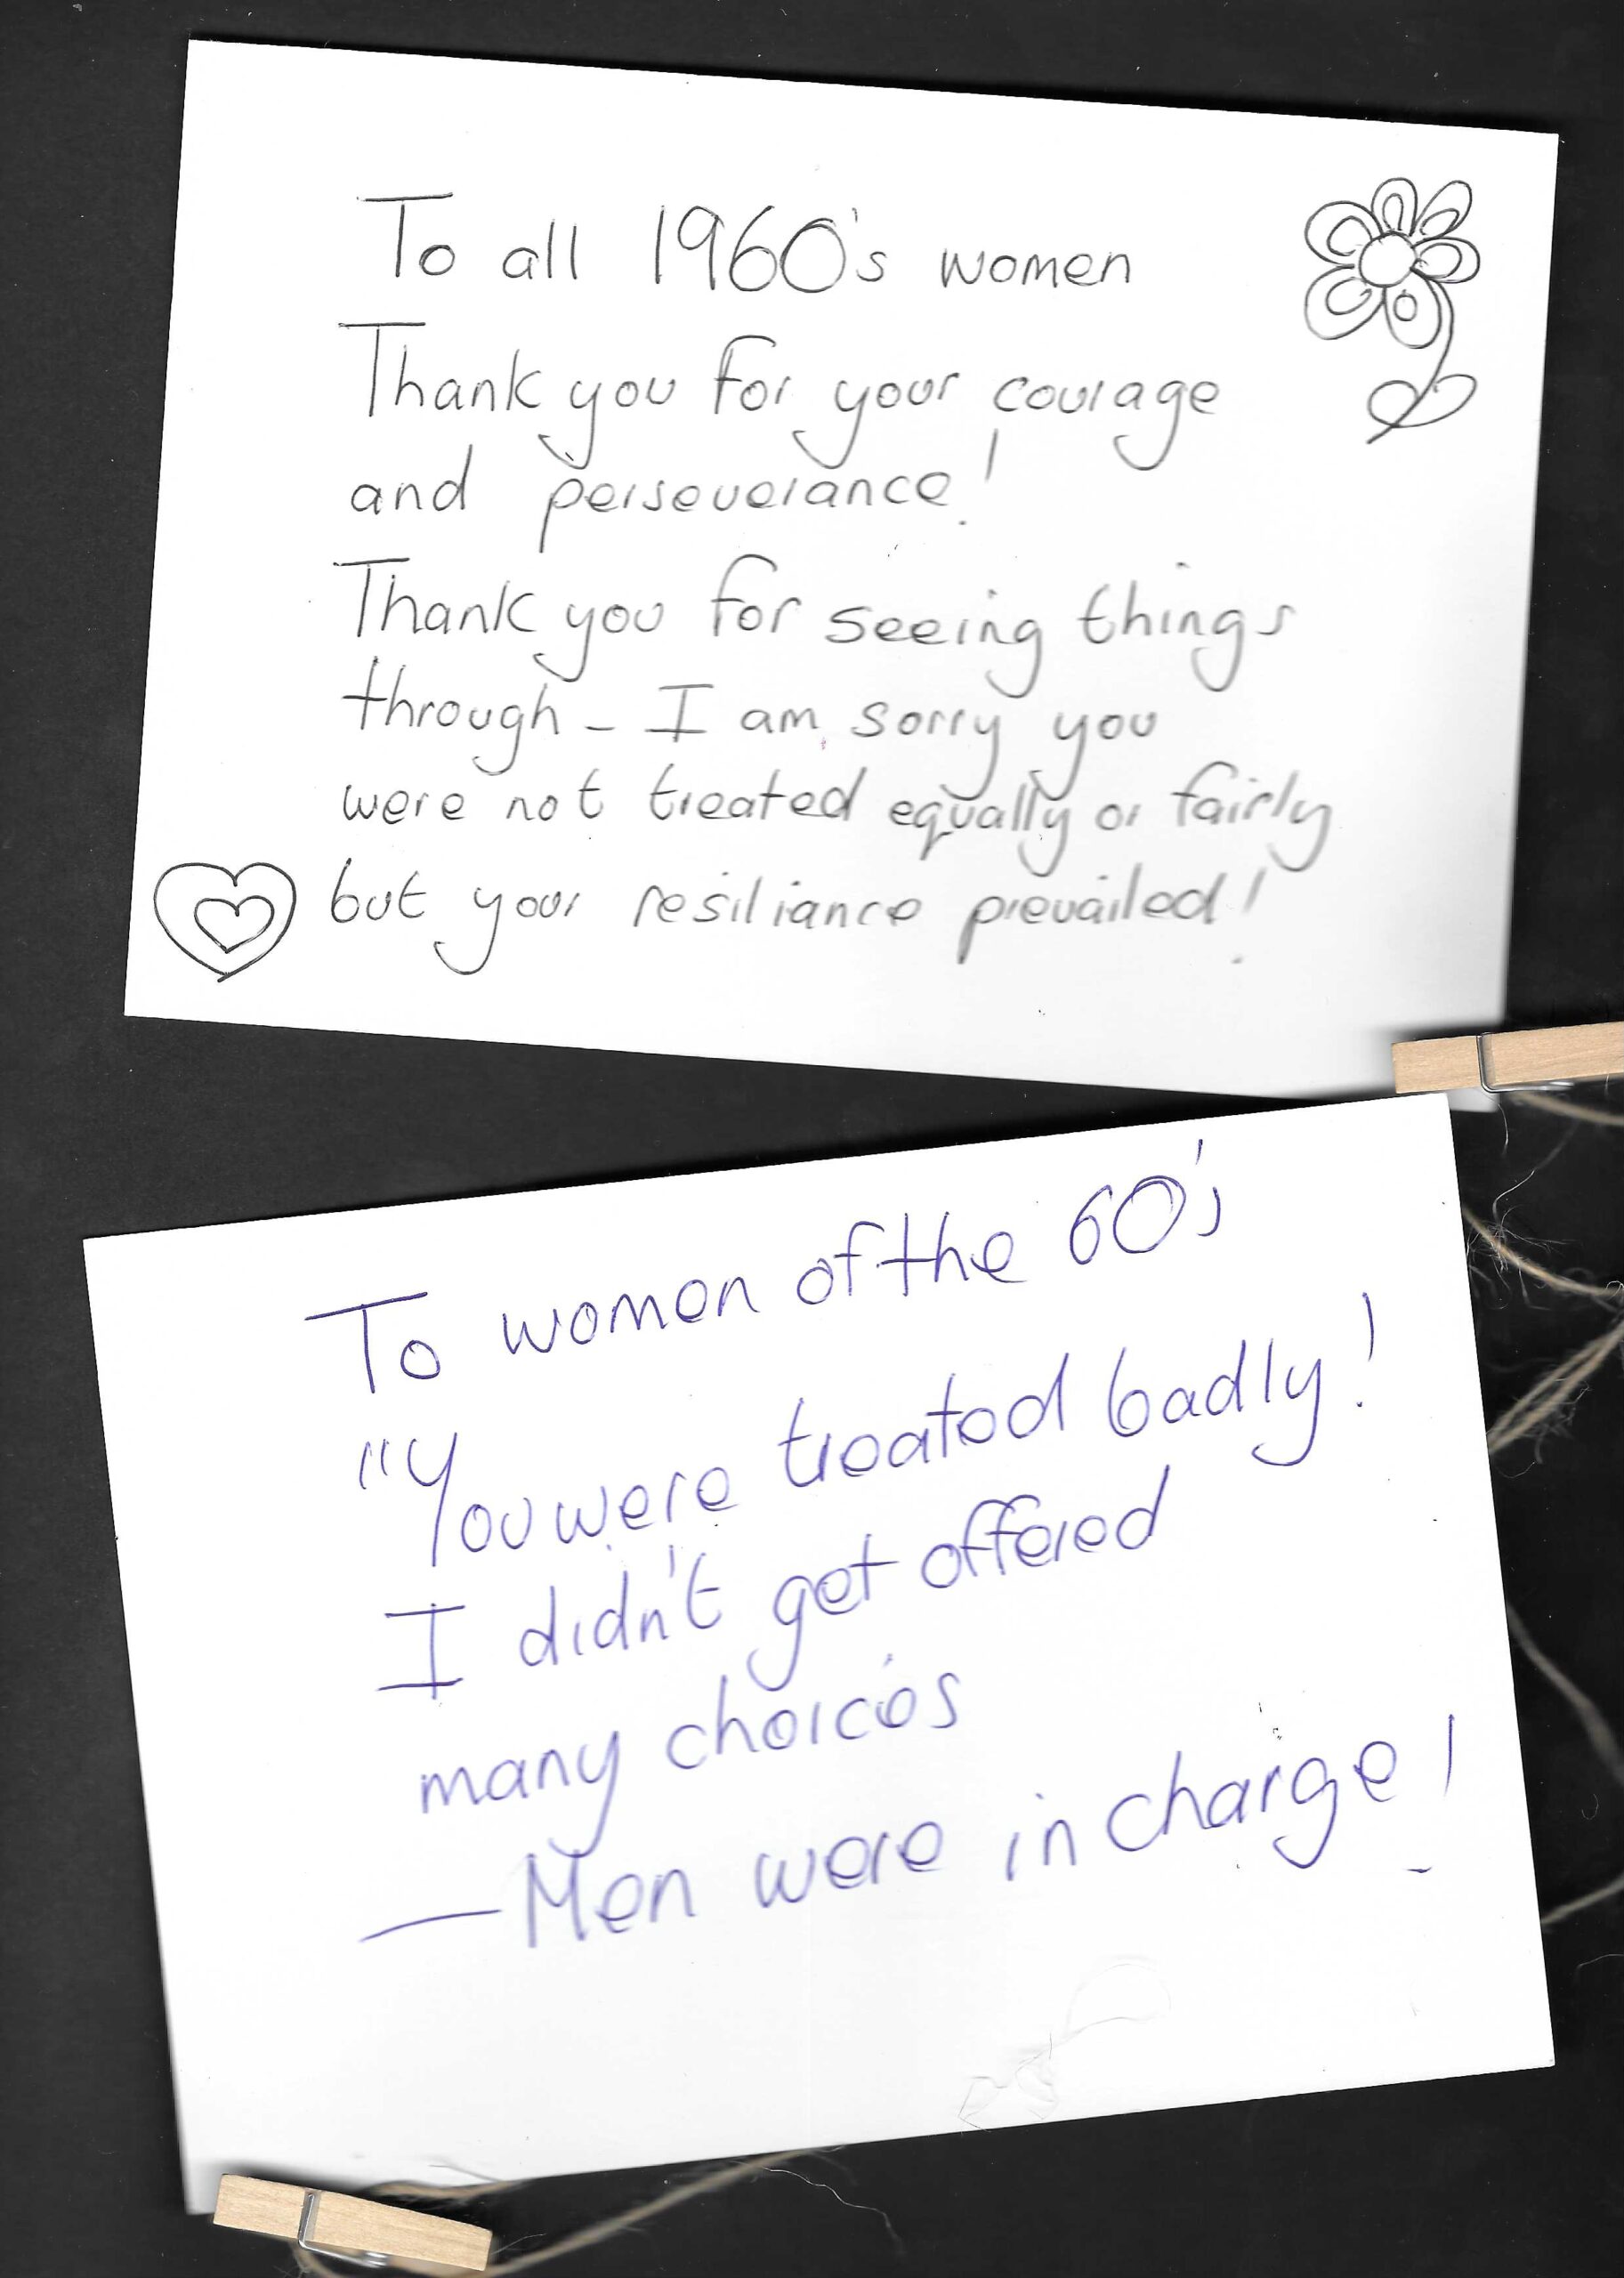 To all 1960's women
Thank you for your courage
and perseverance!
Thank you for seeing things
through - I am sorry you
were not treated equally or fairly
but your resiliance prevailed!
To women of the 60's
"You were treated badly!
I didn't get offered
many choices
—Men were in charge!